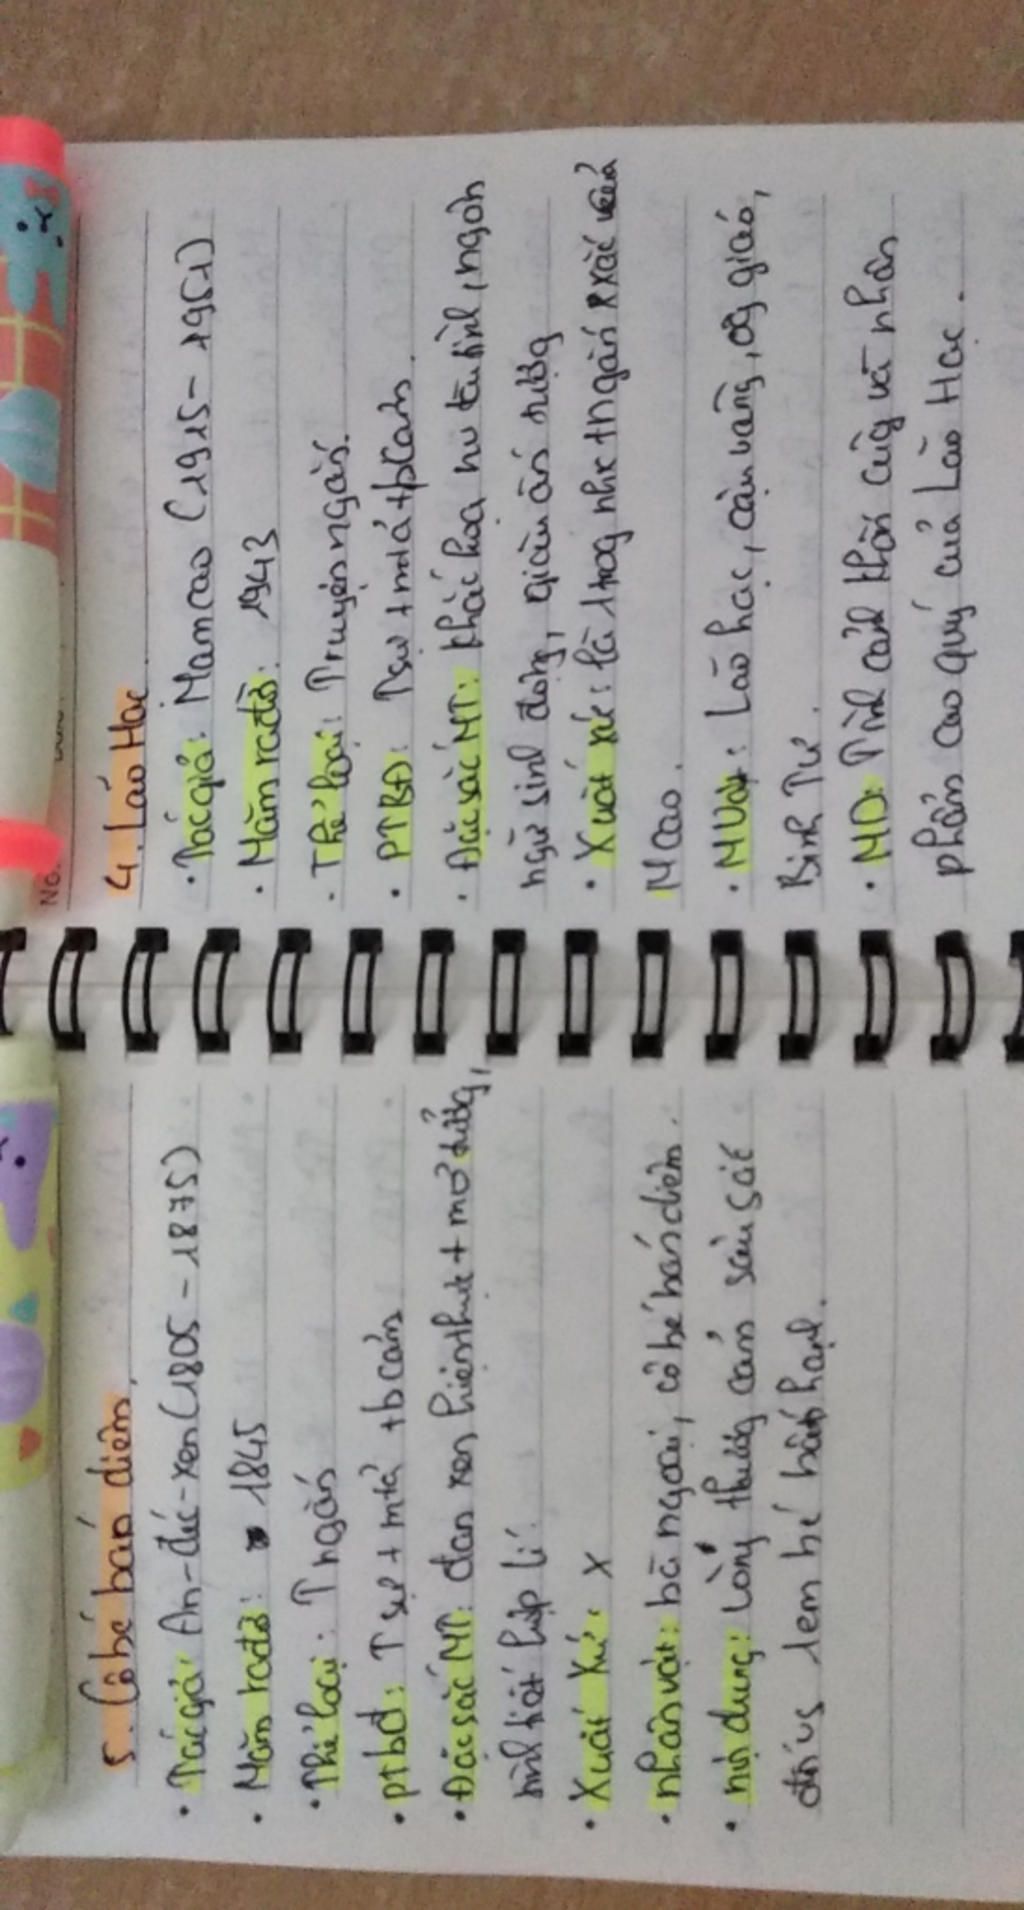 5. Cô bé bán diêm
• Tác giả: An-đéc-xen (1805 - 1875)
• Năm ra đời: 1845
• Thể loại: T ngắn
• ptbđ: T sự + mtả + bcảm
• Đặc sắc NT: đan xen hiện thực + mơ tưởng,
tình tiết hợp lí.
• Xuất xứ: X
• nhân vật: bà ngoại, cô bé bán diêm.
• nội dung: Lòng thương cảm sâu sắc
đối vs 1 em bé bất hạnh.
No.
4. Lão Hạc
• Tác giả: Nam Cao (1915 - 1951)
• Năm ra đời: 1943
• Thể loại: Truyện ngắn.
• PTBĐ: Tsự + mtả + bcảm.
• Đặc sắc NT: khắc họa nv tài tình, ngôn
ngữ sinh động, giàu ấn tượng
• Xuất xứ: là 1 trog nhx tngắn xsắc của
N Cao.
• NVật: Lão hạc, cậu vàng, ôg giáo,
Binh Tư.
• ND: Tình cảnh khốn cùng và nhân
phẩm cao quý của Lão Hạc.